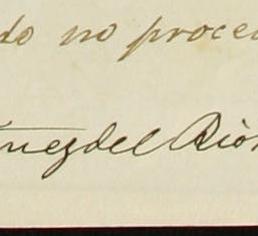 do no proced
nez del Rio